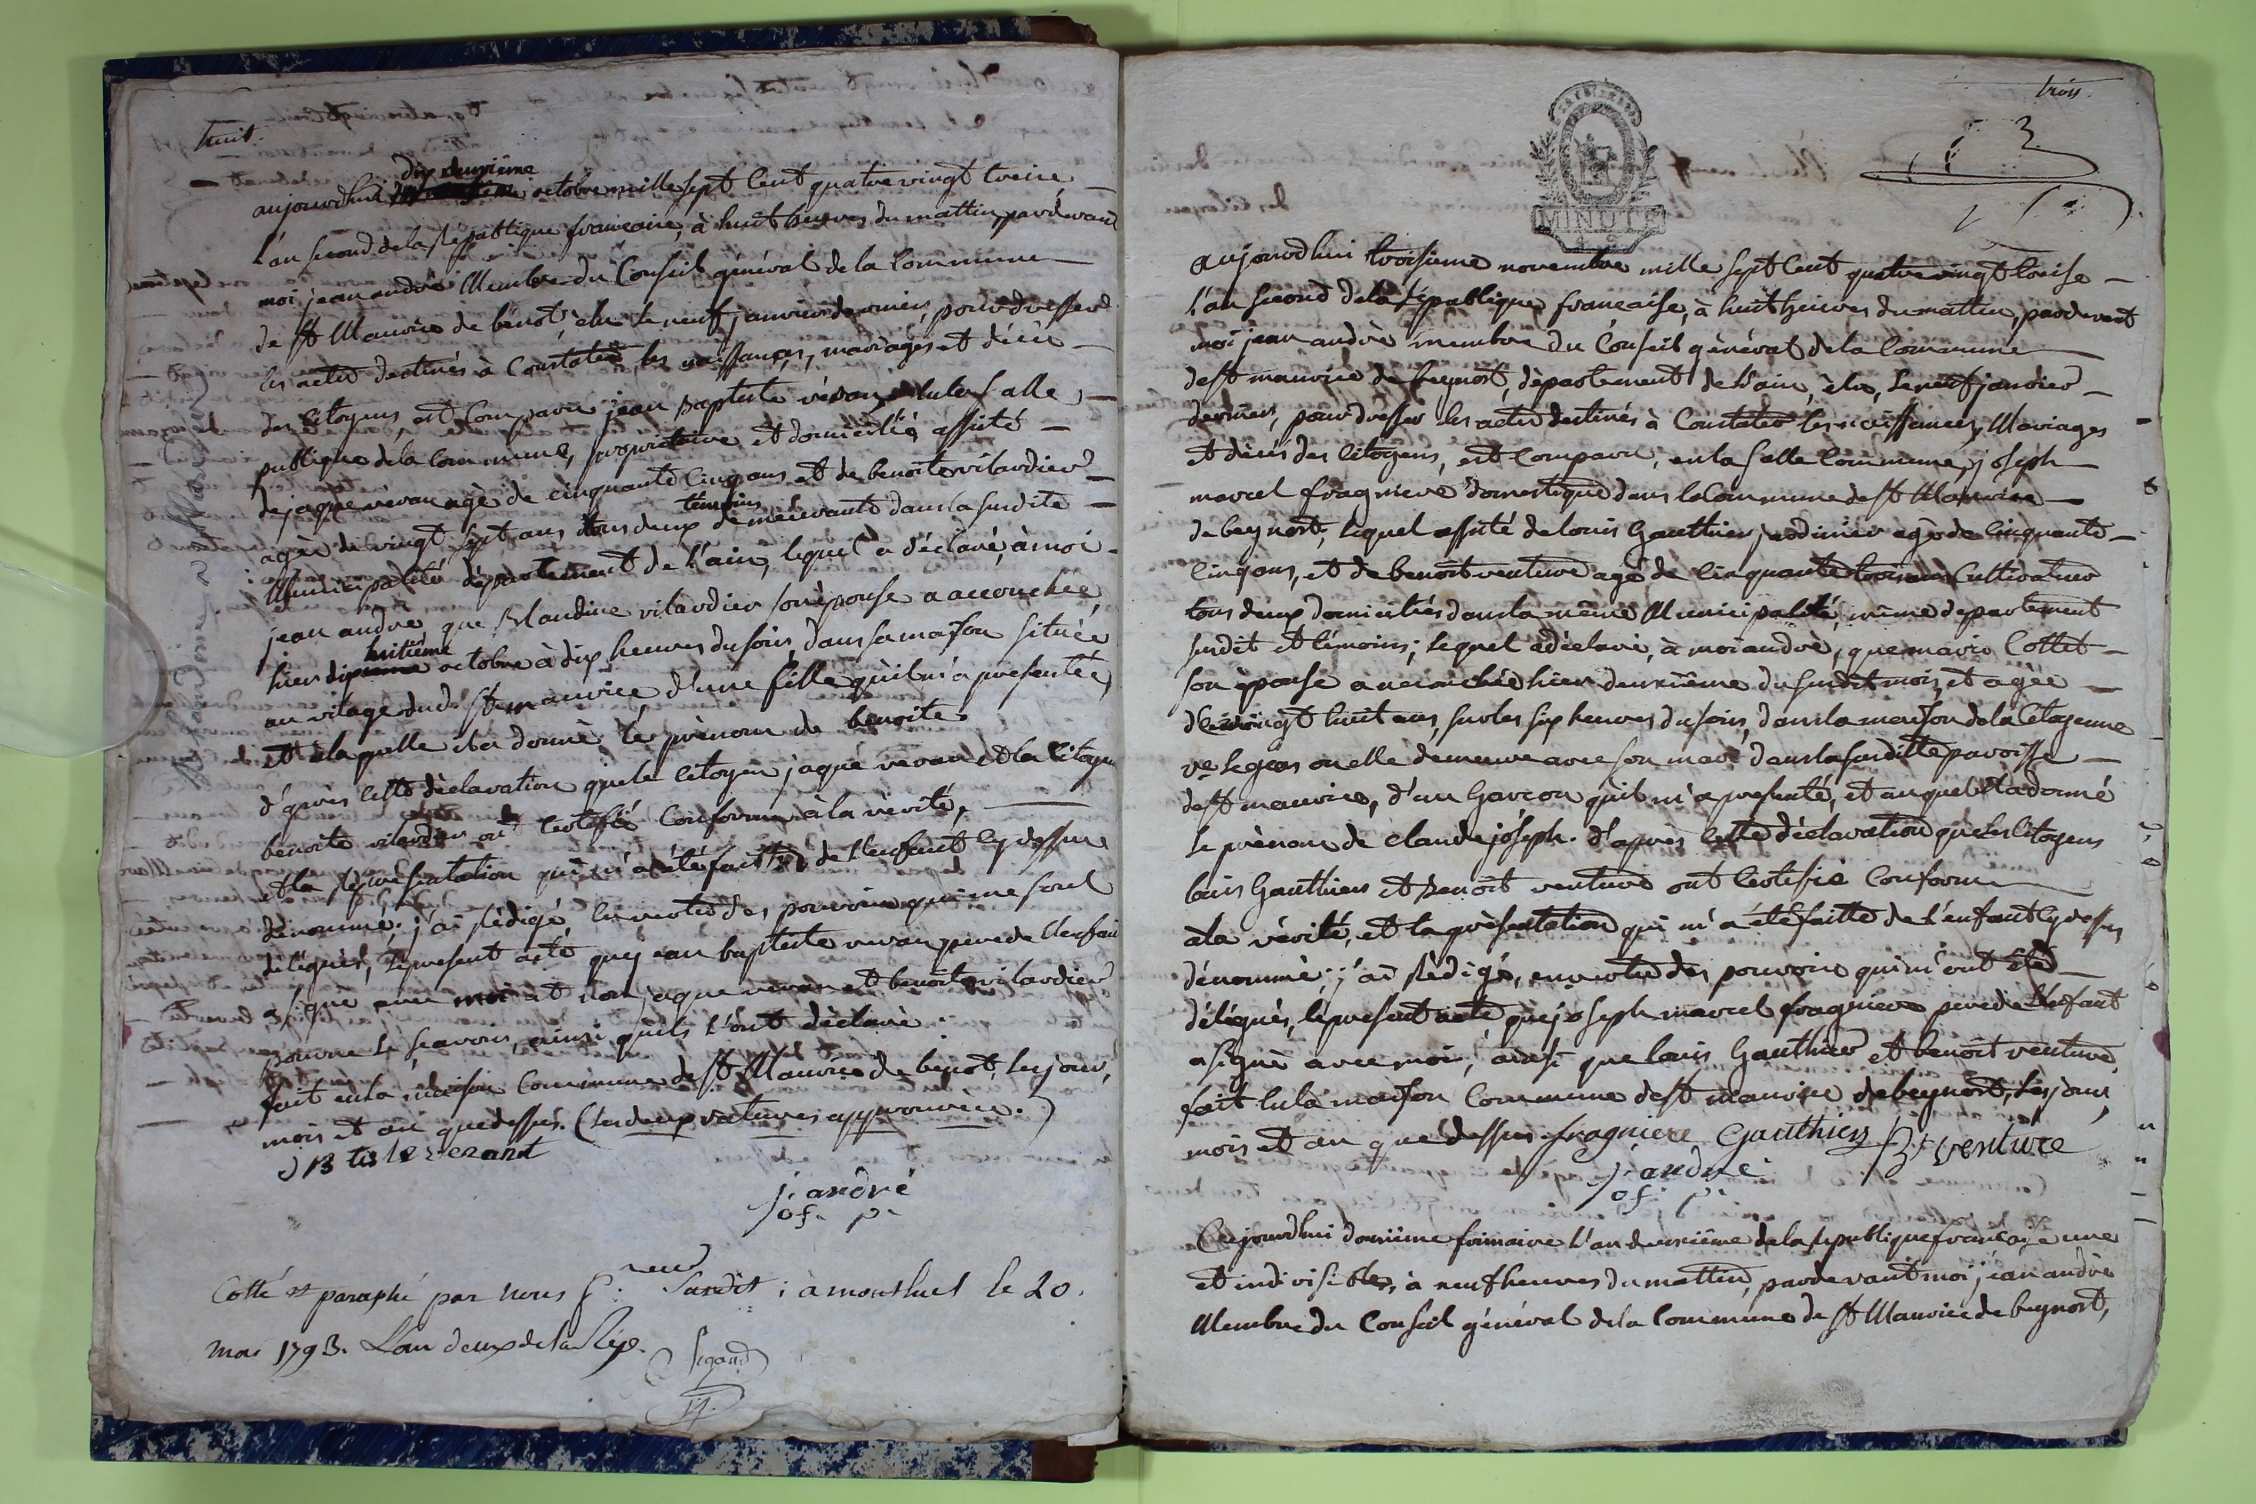 huit.
dix neuvième
aujourdhui octobre mille sept Cent quatre vingt treize
l'an second de la République francaise, à huit heures du mattin, pardevant
moi jean andré Membre du Conseil général de la Commune
de St Maurice de bénot, élu le neuf janvier dernier, pour dresser
les actes destinés à Constater les naissances, mariages et décès
des Citoyens, est Comparu jean Baptiste révan en la Salle
publique de la Commune, propriétaire et domicilié, assisté
de jaque révan agé de cinquante Cinq ans et de benoite vilardier
agée de vingt sept ans tous deux témoins demeurants dans la susdite
Municipalité département de l'ain, lequel a déclaré, à moi
jean andré que Blandine vilardier son épouse a accouchée
huitième
hier dix octobre à dix heures du soir, dans sa maison située
au vilage dud. St maurice, d'une fille qu'il m'a présentée,
et à laquelle il a donné le prénom de benoite.
d'après cette déclaration que le Citoyen jaque révan et la Citoyen
benoite vilardier ont Certifié Conforme à la vérité,
et la représentation qui m'a été faitte de l'enfant cy dessus
dénommé; j'ai rédigé en vertu des pouvoirs qui me sont
délégués, le présent acte que jean baptiste révan pere de l'enfan
a signé avec moi et non jaque révan et benoite vilardier
pour ne le scavoir, ainsi qu'ils l'ont déclaré.
fait en la maison Commune de St Maurice de bénot, les jour,
mois et an que dessus. (les deux ratures approuvées.)
J B tis
j. andré
of. p.
Cotté et paraphé par nous susdit; à montluel le 20.
mai 1793. L'an deux de la Rép.
trois.
3
MINUTE
aujourdhui troisième novembre mille sept Cent quatre vingt treise
l'an second de la République francaise, à huit heures du mattin, pardevant
moi jean andré membre du Conseil général de la Commune
de St maurice de beynost, département de l'ain, élu, le neuf janvier
dernier, pour dresser les actes destinés à Constater les naissances, Mariages
et décès des Citoyens, est Comparu, en la Salle Commune, joseph
marcel fragniere domestique dans la Commune de St Maurice
de beynost; lequel assisté de louis Gauthier, jardinier agé de Cinquante
Cinq ans, et de benoit venture agé de Cinquante trois ans Cultivateur
tous deux domiciliés dans la même Municipalité, même département
susdit et témoins; lequel a déclaré, à moi andré, que marie Collet
son épouse a accouchée hier deuxième du susdit mois, et agée
de vingt huit ans, sur les six heures du soir, dans la maison de la Citoyenne
ve legras ou elle demeure avec son mari dans la susditte paroisse
de St maurice, d'un Garcon qu'il m'a présenté, et auquel il a donné
le prénom de claude joseph. d'après cette déclaration que les Citoyens
louis Gauthier et Benoit venture ont Certifié Conforme
a la vérité, et la présentation qui m'a été faitte de l'enfant cy dessus
dénommé; j'ai rédigé, en vertu des pouvoirs qui m'ont été
délégués, le présent acte que joseph marcel fragniere pere de l'enfant
a signé avec moi, ainsi que louis Gauthier et benoit venture,
fait en la maison Commune de St maurice de beynost, les jour,
mois et an que dessus. fragniere Gauthier Bt venture
j. andré
of p.
Cejourdhui frimaire l'an deuxième de la République française une
et indivisible, à neuf heures du mattin, pardevant moi jean andré
Membre du Conseil général de la Commune de St Maurice de beynost,